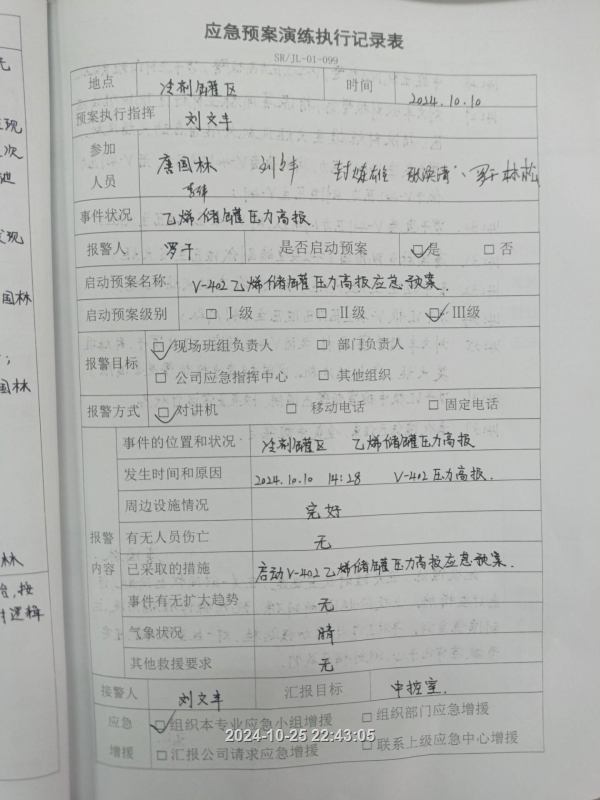 应急预案演练执行记录表
SR/JL-01-099
地点 冷剂罐区 时间 2024.10.10
预案执行指挥 刘文丰
参加人员 唐国林 封炼雄 罗干 林松
事件状况 乙烯储罐压力高报
报警人 罗干 是否启动预案 ☑是 □否
启动预案名称 V-402乙烯储罐压力高报应急预案.
启动预案级别 □Ⅰ级 □Ⅱ级 ☑Ⅲ级
报警目标 ☑现场班组负责人 □部门负责人
□公司应急指挥中心 □其他组织
报警方式 ☑对讲机 □移动电话 □固定电话
报警内容
事件的位置和状况 冷剂罐区 乙烯储罐压力高报
发生时间和原因 2024.10.10 14:28 V-402压力高报.
周边设施情况 完好
有无人员伤亡 无
已采取的措施 启动V-402乙烯储罐压力高报应急预案.
事件有无扩大趋势 无
气象状况 晴
其他救援要求 无
接警人 刘文丰 汇报目标 中控室.
应急增援 ☑组织本专业应急小组增援 □组织部门应急增援
□汇报公司请求应急增援 □联系上级应急中心增援
2024-10-25 22:43:05